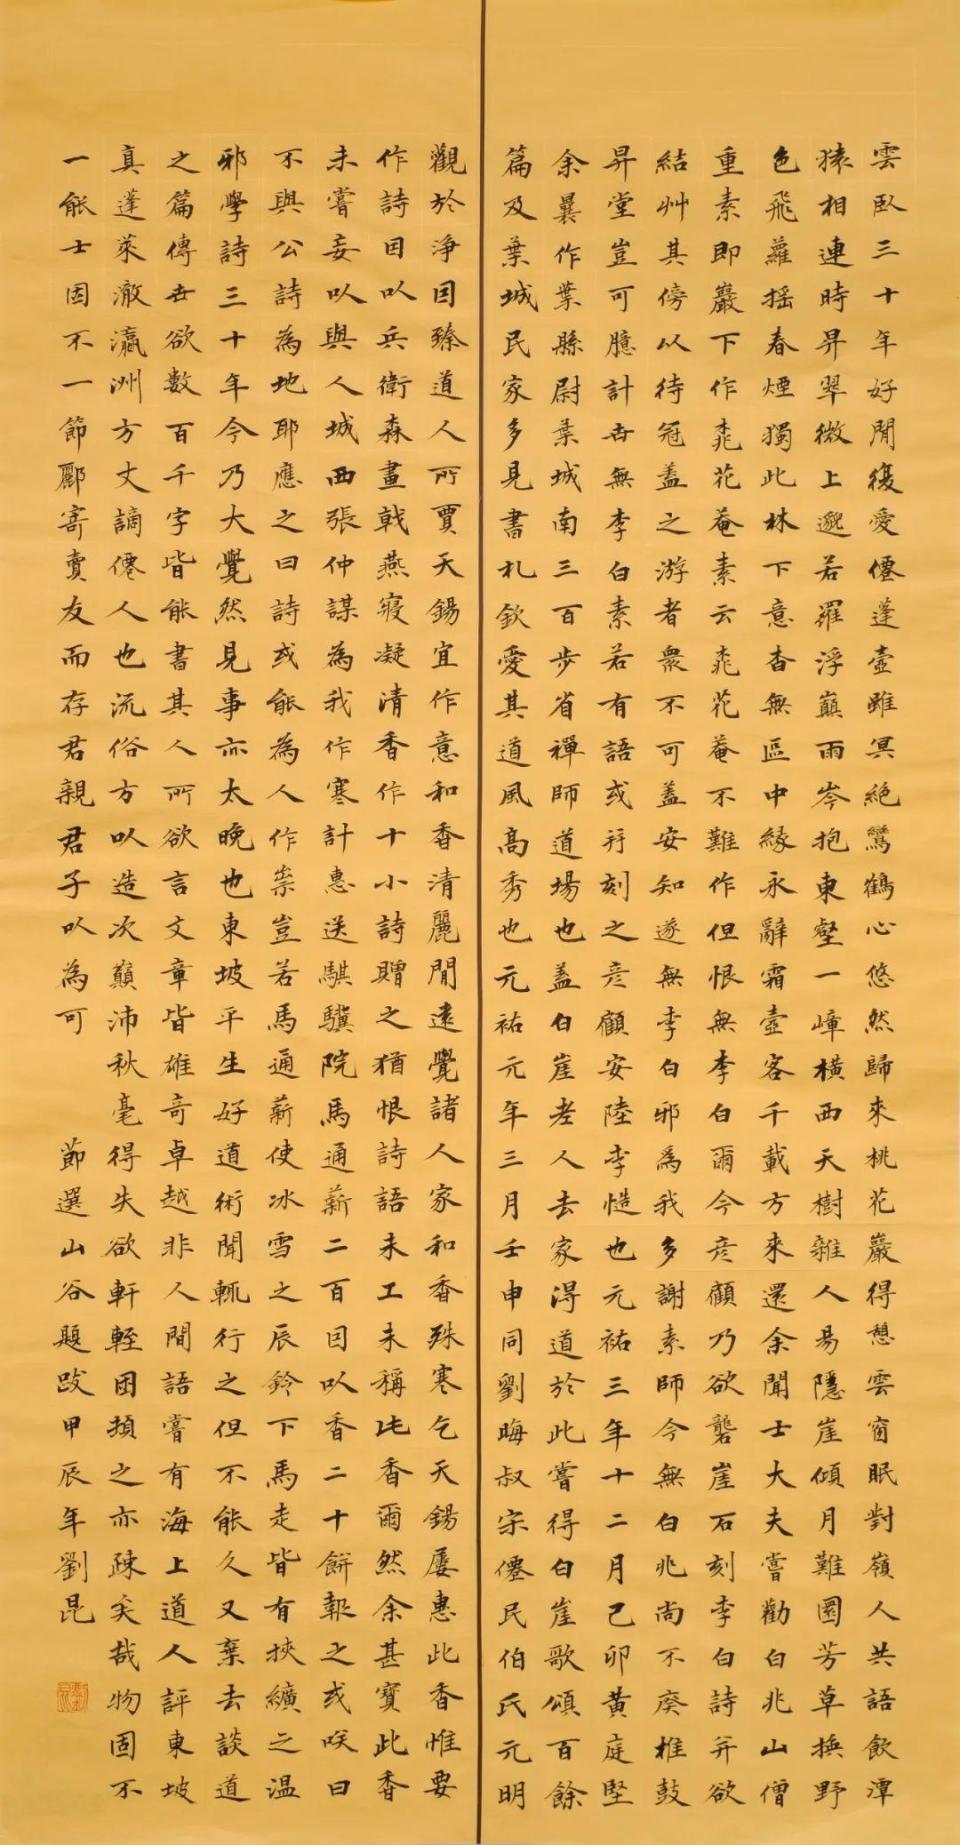 雲臥三十年好閒復愛僊蓬壺雖冥絕鸞鶴心悠然歸來桃花巖得憩雲窗眠對嶺人共語飲潭
猿相連時昇翠微上邈若羅浮巔兩岑抱東壑一嶂橫西天樹雜人易隱崖傾月難圓芳草換野
色飛蘿搖春煙獨此林下意杳無區中緣永辭霜臺客千載方來還余聞士大夫嘗勸白兆山僧
重素即巖下作桃花菴素云桃花菴不難作但恨無李白爾今彥顧乃欲礱崖石刻李白詩并欲
結艸其傍以待冠蓋之游者衆不可蓋安知遂無李白邪爲我多謝素師今無白兆尚不廢椎鼓
昇堂豈可臆計古無李白素若有語或并刻之彥顧安陸李慥也元祐三年十二月己卯黃庭堅
余曩作葉縣尉葉城南三百步省禪師道場也蓋白崖老人去家得道於此嘗得白崖歌頌百餘
篇及葉城民家多見書札欽愛其道風高秀也元祐元年三月壬申同劉晦叔宋僊民伯氏元明
觀於淨因臻道人所賈天錫宜作意和香清麗閒遠覺諸人家和香殊寒乞天錫屢惠此香惟要
作詩因以兵衛森畫戟燕寢凝清香作十小詩贈之猶恨詩語未工未稱此香爾然余甚寶此香
未嘗妄以與人城西張仲謀為我作寒計惠送騏驥院馬通薪二百因以香二十餅報之或咲曰
不與公詩為地耶應之曰詩或能為人作祟豈若馬通薪使冰雪之辰鈴下馬走皆有挾纊之溫
邪學詩三十年今乃大覺然見事亦太晚也東坡平生好道術聞輒行之但不能久又棄去談道
之篇傳世欲數百千字皆能書其人所欲言文章皆雄奇卓越非人間語嘗有海上道人評東坡
真蓬萊瀛洲方丈謫僊人也流俗方以造次顛沛秋毫得失欲軒輊困頓之亦疎矣哉物固不
一能士固不一節酈寄賣友而存君親君子以為可　節選山谷題跋甲辰年劉昆